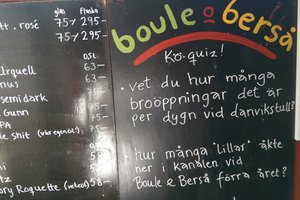 glas flaska
tt, rosé 75/295-
75/295-
0,5l
Urquell 63-
63-
semidark 7
7
PA
le shit (vår egen öl!)
ni
ory Roquette (veteöl) 58-
boule o berså
Kö-quiz!
• vet du hur många
broöppningar det är
per dygn vid danvikstull?
• hur många 'Lillar' åkte
ner i kanalen vid
Boule & Berså förra året?